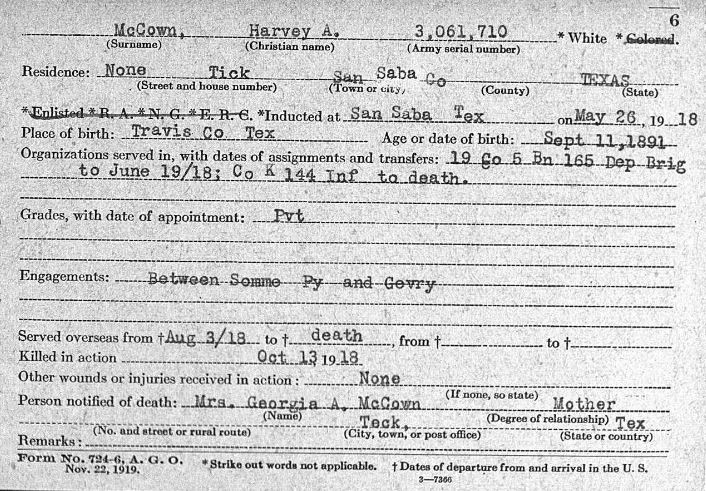 6
McCown, Harvey A. 3,061,710 * White * Colored.
(Surname) (Christian name) (Army serial number)
Residence: None Tick San Saba Co TEXAS
(Street and house number) (Town or city) (County) (State)
*Enlisted *R. A. *N. G. *E. R. C. *Inducted at San Saba Tex on May 26, 19 18
Place of birth: Travis Co Tex Age or date of birth: Sept 11,1891
Organizations served in, with dates of assignments and transfers: 19 Co 5 Bn 165 Dep Brig
to June 19/18; Co K 144 Inf to death.
Grades, with date of appointment: Pvt
Engagements: Between Somme Py and Gevry
Served overseas from †Aug 3/18 to † death, from † to †
Killed in action Oct 13 19 18
Other wounds or injuries received in action: None
(If none, so state)
Person notified of death: Mrs. Georgia A. McCown Mother
(Name) (Degree of relationship)
Teck, Tex
(No. and street or rural route) (City, town, or post office) (State or country)
Remarks:
Form No. 724-6, A. G. O.
Nov. 22, 1919.
*Strike out words not applicable. † Dates of departure from and arrival in the U. S.
3—7366